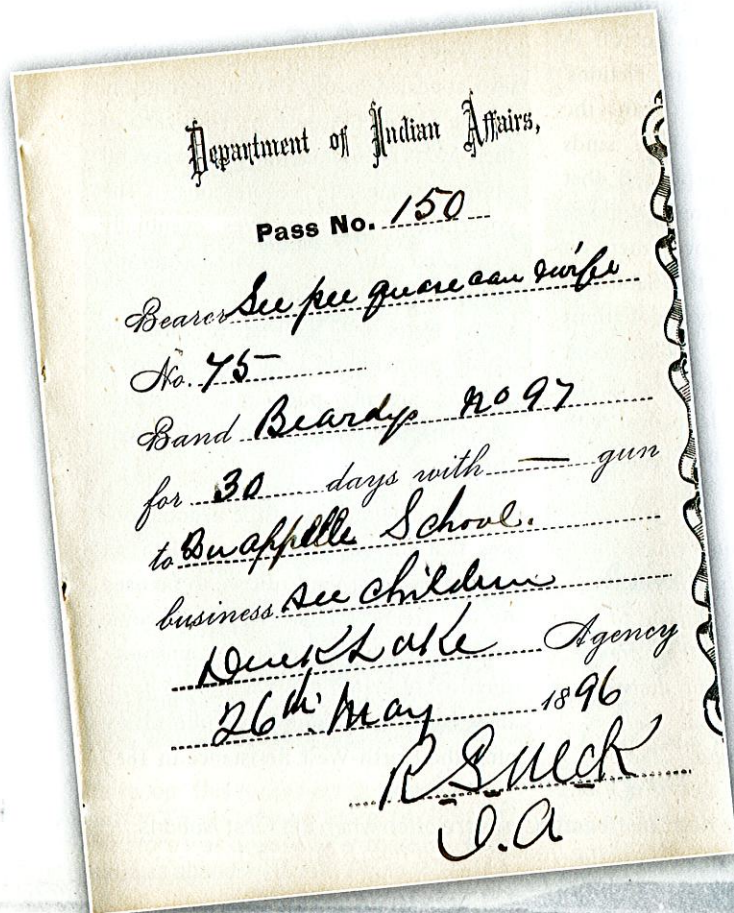 Department of Indian Affairs,
Pass No. 150
Bearer See pee quase cau wife
No. 75
Band Beardys no 97
for 30 days with — gun
to Quappelle School.
business see children
Duck Lake Agency
26th May 1896
R S McK
I.A